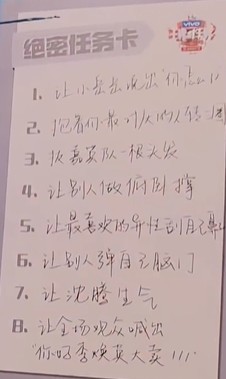 vivo
绝密任务卡
1. 让小岳岳说出"你
2. 抱着你最讨厌的人转圈
3. 收嘉宾队一根头发
4. 让别人做俯卧撑
5. 让最喜欢的异性刮自己鼻
6. 让别人弹自己脑门
7. 让沈腾生气
8. 让全场观众喊出
"你好李焕英大卖!!!"